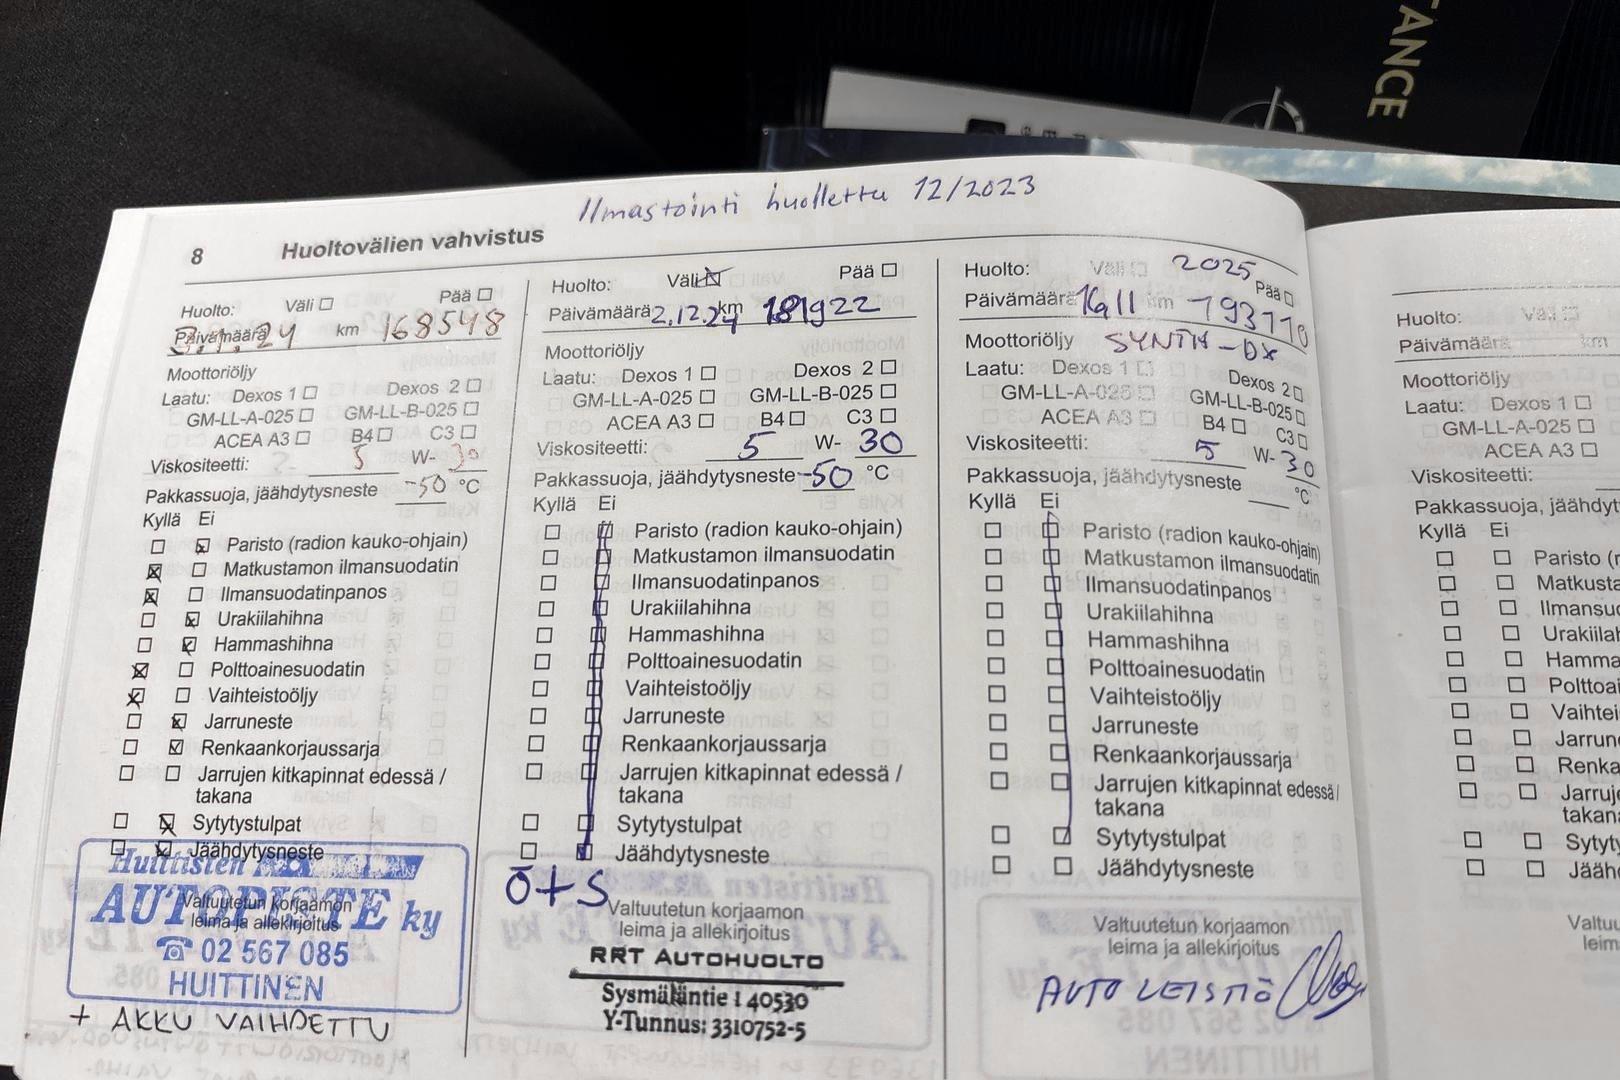 TANCE
Ilmastointi huollettu 12/2023
8 Huoltovälien vahvistus
Huolto: Väli ☐ Pää ☐
Päivämäärä 3.1.24 km 168548
Moottoriöljy
Laatu: Dexos 1 ☐ Dexos 2 ☐
GM-LL-A-025 ☐ GM-LL-B-025 ☐
ACEA A3 ☐ B4 ☐ C3 ☐
Viskositeetti: 5 W- 30
Pakkassuoja, jäähdytysneste -50 °C
Kyllä Ei
☐ ☒ Paristo (radion kauko-ohjain)
☒ ☐ Matkustamon ilmansuodatin
☒ ☐ Ilmansuodatinpanos
☐ ☒ Urakiilahihna
☐ ☒ Hammashihna
☒ ☐ Polttoainesuodatin
☒ ☐ Vaihteistoöljy
☐ ☒ Jarruneste
☐ ☒ Renkaankorjaussarja
☐ ☐ Jarrujen kitkapinnat edessä /
takana
☐ ☒ Sytytystulpat
☐ ☒ Jäähdytysneste
Huittisten
AUTOPISTE ky
Valtuutetun korjaamon
leima ja allekirjoitus
☎ 02 567 085
HUITTINEN
+ AKKU VAIHDETTU
Huolto: Väli ☒ Pää ☐
Päivämäärä 2.12.24 km 181922
Moottoriöljy
Laatu: Dexos 1 ☐ Dexos 2 ☐
GM-LL-A-025 ☐ GM-LL-B-025 ☐
ACEA A3 ☐ B4 ☐ C3 ☐
Viskositeetti: 5 W- 30
Pakkassuoja, jäähdytysneste -50 °C
Kyllä Ei
☐ ☐ Paristo (radion kauko-ohjain)
☐ ☐ Matkustamon ilmansuodatin
☐ ☐ Ilmansuodatinpanos
☐ ☐ Urakiilahihna
☐ ☐ Hammashihna
☐ ☐ Polttoainesuodatin
☐ ☐ Vaihteistoöljy
☐ ☐ Jarruneste
☐ ☐ Renkaankorjaussarja
☐ ☐ Jarrujen kitkapinnat edessä /
takana
☐ ☐ Sytytystulpat
☐ ☐ Jäähdytysneste
Ö+S
Valtuutetun korjaamon
leima ja allekirjoitus
RRT AUTOHUOLTO
Sysmäläntie 1 40530
Y-Tunnus: 3310752-5
Huolto: Väli ☐ 2025 Pää ☐
Päivämäärä 16.11 km 193110
Moottoriöljy SYNTH-DX
Laatu: Dexos 1 ☐ Dexos 2 ☐
GM-LL-A-025 ☐ GM-LL-B-025 ☐
ACEA A3 ☐ B4 ☐ C3 ☐
Viskositeetti: 5 W- 30
Pakkassuoja, jäähdytysneste °C
Kyllä Ei
☐ ☐ Paristo (radion kauko-ohjain)
☐ ☐ Matkustamon ilmansuodatin
☐ ☐ Ilmansuodatinpanos
☐ ☐ Urakiilahihna
☐ ☐ Hammashihna
☐ ☐ Polttoainesuodatin
☐ ☐ Vaihteistoöljy
☐ ☐ Jarruneste
☐ ☐ Renkaankorjaussarja
☐ ☐ Jarrujen kitkapinnat edessä /
takana
☐ ☐ Sytytystulpat
☐ ☐ Jäähdytysneste
Valtuutetun korjaamon
leima ja allekirjoitus
AUTO LEISTIÖ
Huolto: Väli ☐
Päivämäärä km
Moottoriöljy
Laatu: Dexos 1 ☐
GM-LL-A-025 ☐
ACEA A3 ☐
Viskositeetti:
Pakkassuoja, jäähdyt
Kyllä Ei
☐ ☐ Paristo (r
☐ ☐ Matkusta
☐ ☐ Ilmansuo
☐ ☐ Urakiilah
☐ ☐ Hamma
☐ ☐ Polttoai
☐ ☐ Vaihtei
☐ ☐ Jarrun
☐ ☐ Renka
☐ ☐ Jarruje
takana
☐ ☐ Sytyty
☐ ☐ Jäähd
Valtuu
leim